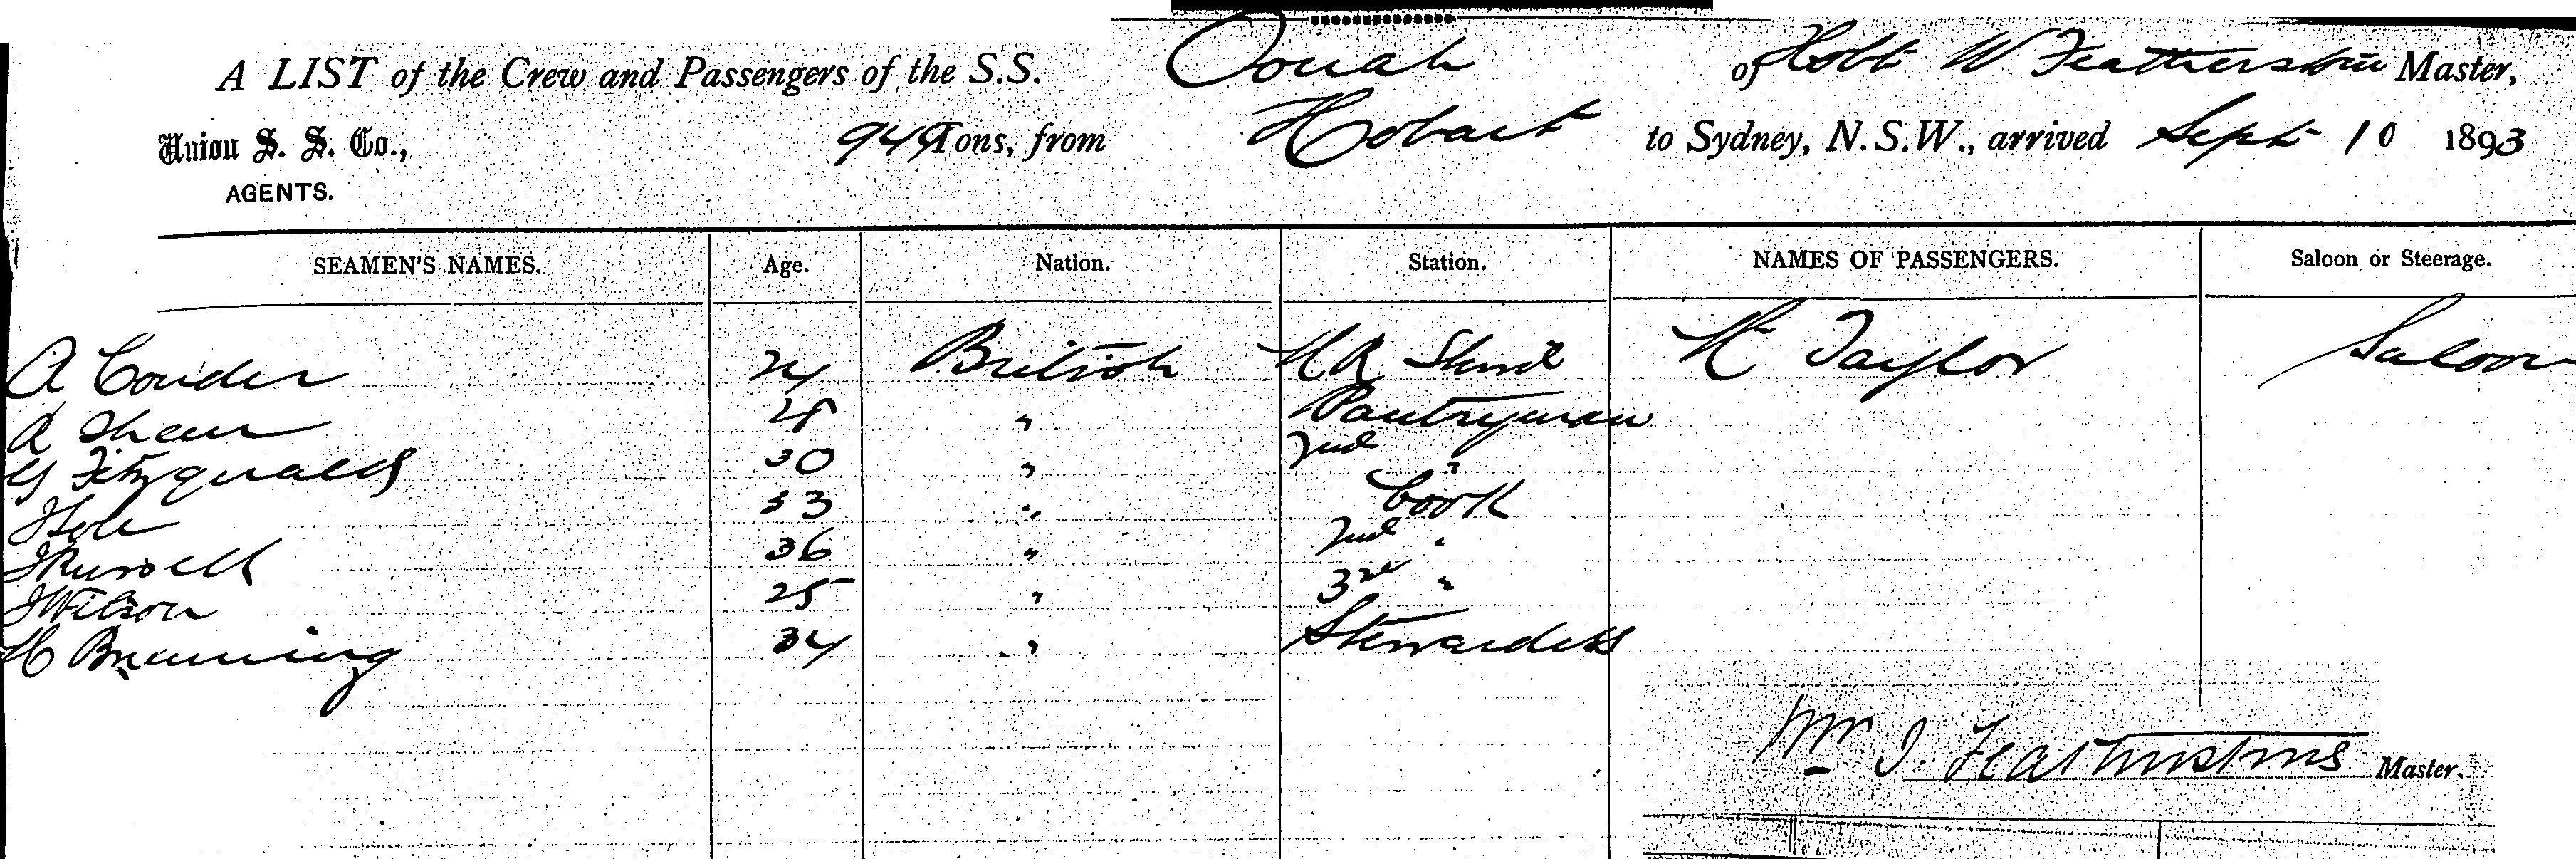 A LIST of the Crew and Passengers of the S.S. Oonah of Hobt W Featherstone Master,
Union S. S. Co., AGENTS. 949 Tons, from Hobart to Sydney, N.S.W., arrived Sept 10 1893
SEAMEN'S NAMES. Age. Nation. Station. NAMES OF PASSENGERS. Saloon or Steerage.
A Conder 24 British Mr Taylor Saloon
28 " Pantryman
G Fitzgerald 30 " 2nd "
33 " Cook
J Russell 36 " 2nd "
J Wilson 25 " 3rd "
H Browning 34 " Stewardess
Wm J. Featherstone Master.